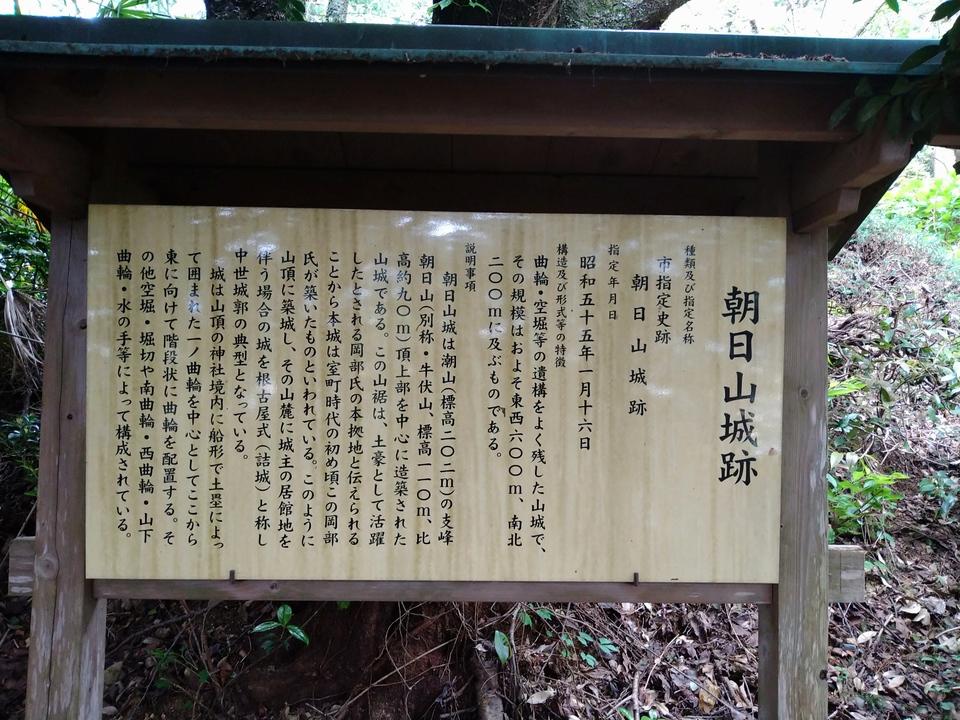 朝日山城跡
種類及び指定名称
市指定史跡
朝日山城跡
指定年月日
昭和五十五年一月十六日
構造及び形式等の特徴
曲輪・空堀等の遺構をよく残した山城で、
その規模はおよそ東西六〇〇m、南北
二〇〇mに及ぶものである。
説明事項
朝日山城は潮山(標高二〇二m)の支峰
朝日山(別称・牛伏山、標高一一〇m、比
高約九〇m)頂上部を中心に造築された
山城である。この山裾は、土豪として活躍
したとされる岡部氏の本拠地と伝えられる
ことから本城は室町時代の初め頃この岡部
氏が築いたものといわれている。このように
山頂に築城し、その山麓に城主の居館地を
伴う場合の城を根古屋式(詰城)と称し
中世城郭の典型となっている。
城は山頂の神社境内に船形で土塁によっ
て囲まれた一ノ曲輪を中心としてここから
東に向けて階段状に曲輪を配置する。そ
の他空堀・堀切や南曲輪・西曲輪・山下
曲輪・水の手等によって構成されている。